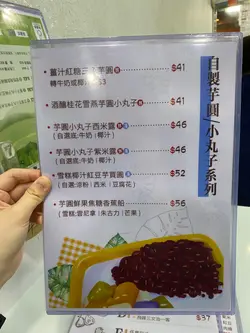 自製芋圓/小丸子系列
薑汁紅糖 芋圓 $41
轉牛奶或椰汁 $3
酒釀桂花雪燕芋圓小丸子 $41
芋圓小丸子西米露 $46
(自選底:牛奶/椰汁)
芋圓小丸子紫米露 $46
(自選底:牛奶/椰汁)
雪糕椰汁紅豆芋圓 $52
(自選:涼粉/西米/豆腐花)
芋圓鮮果焦糖香蕉船 $56
(雪糕:雲尼拿/朱古力/芒果)
$37